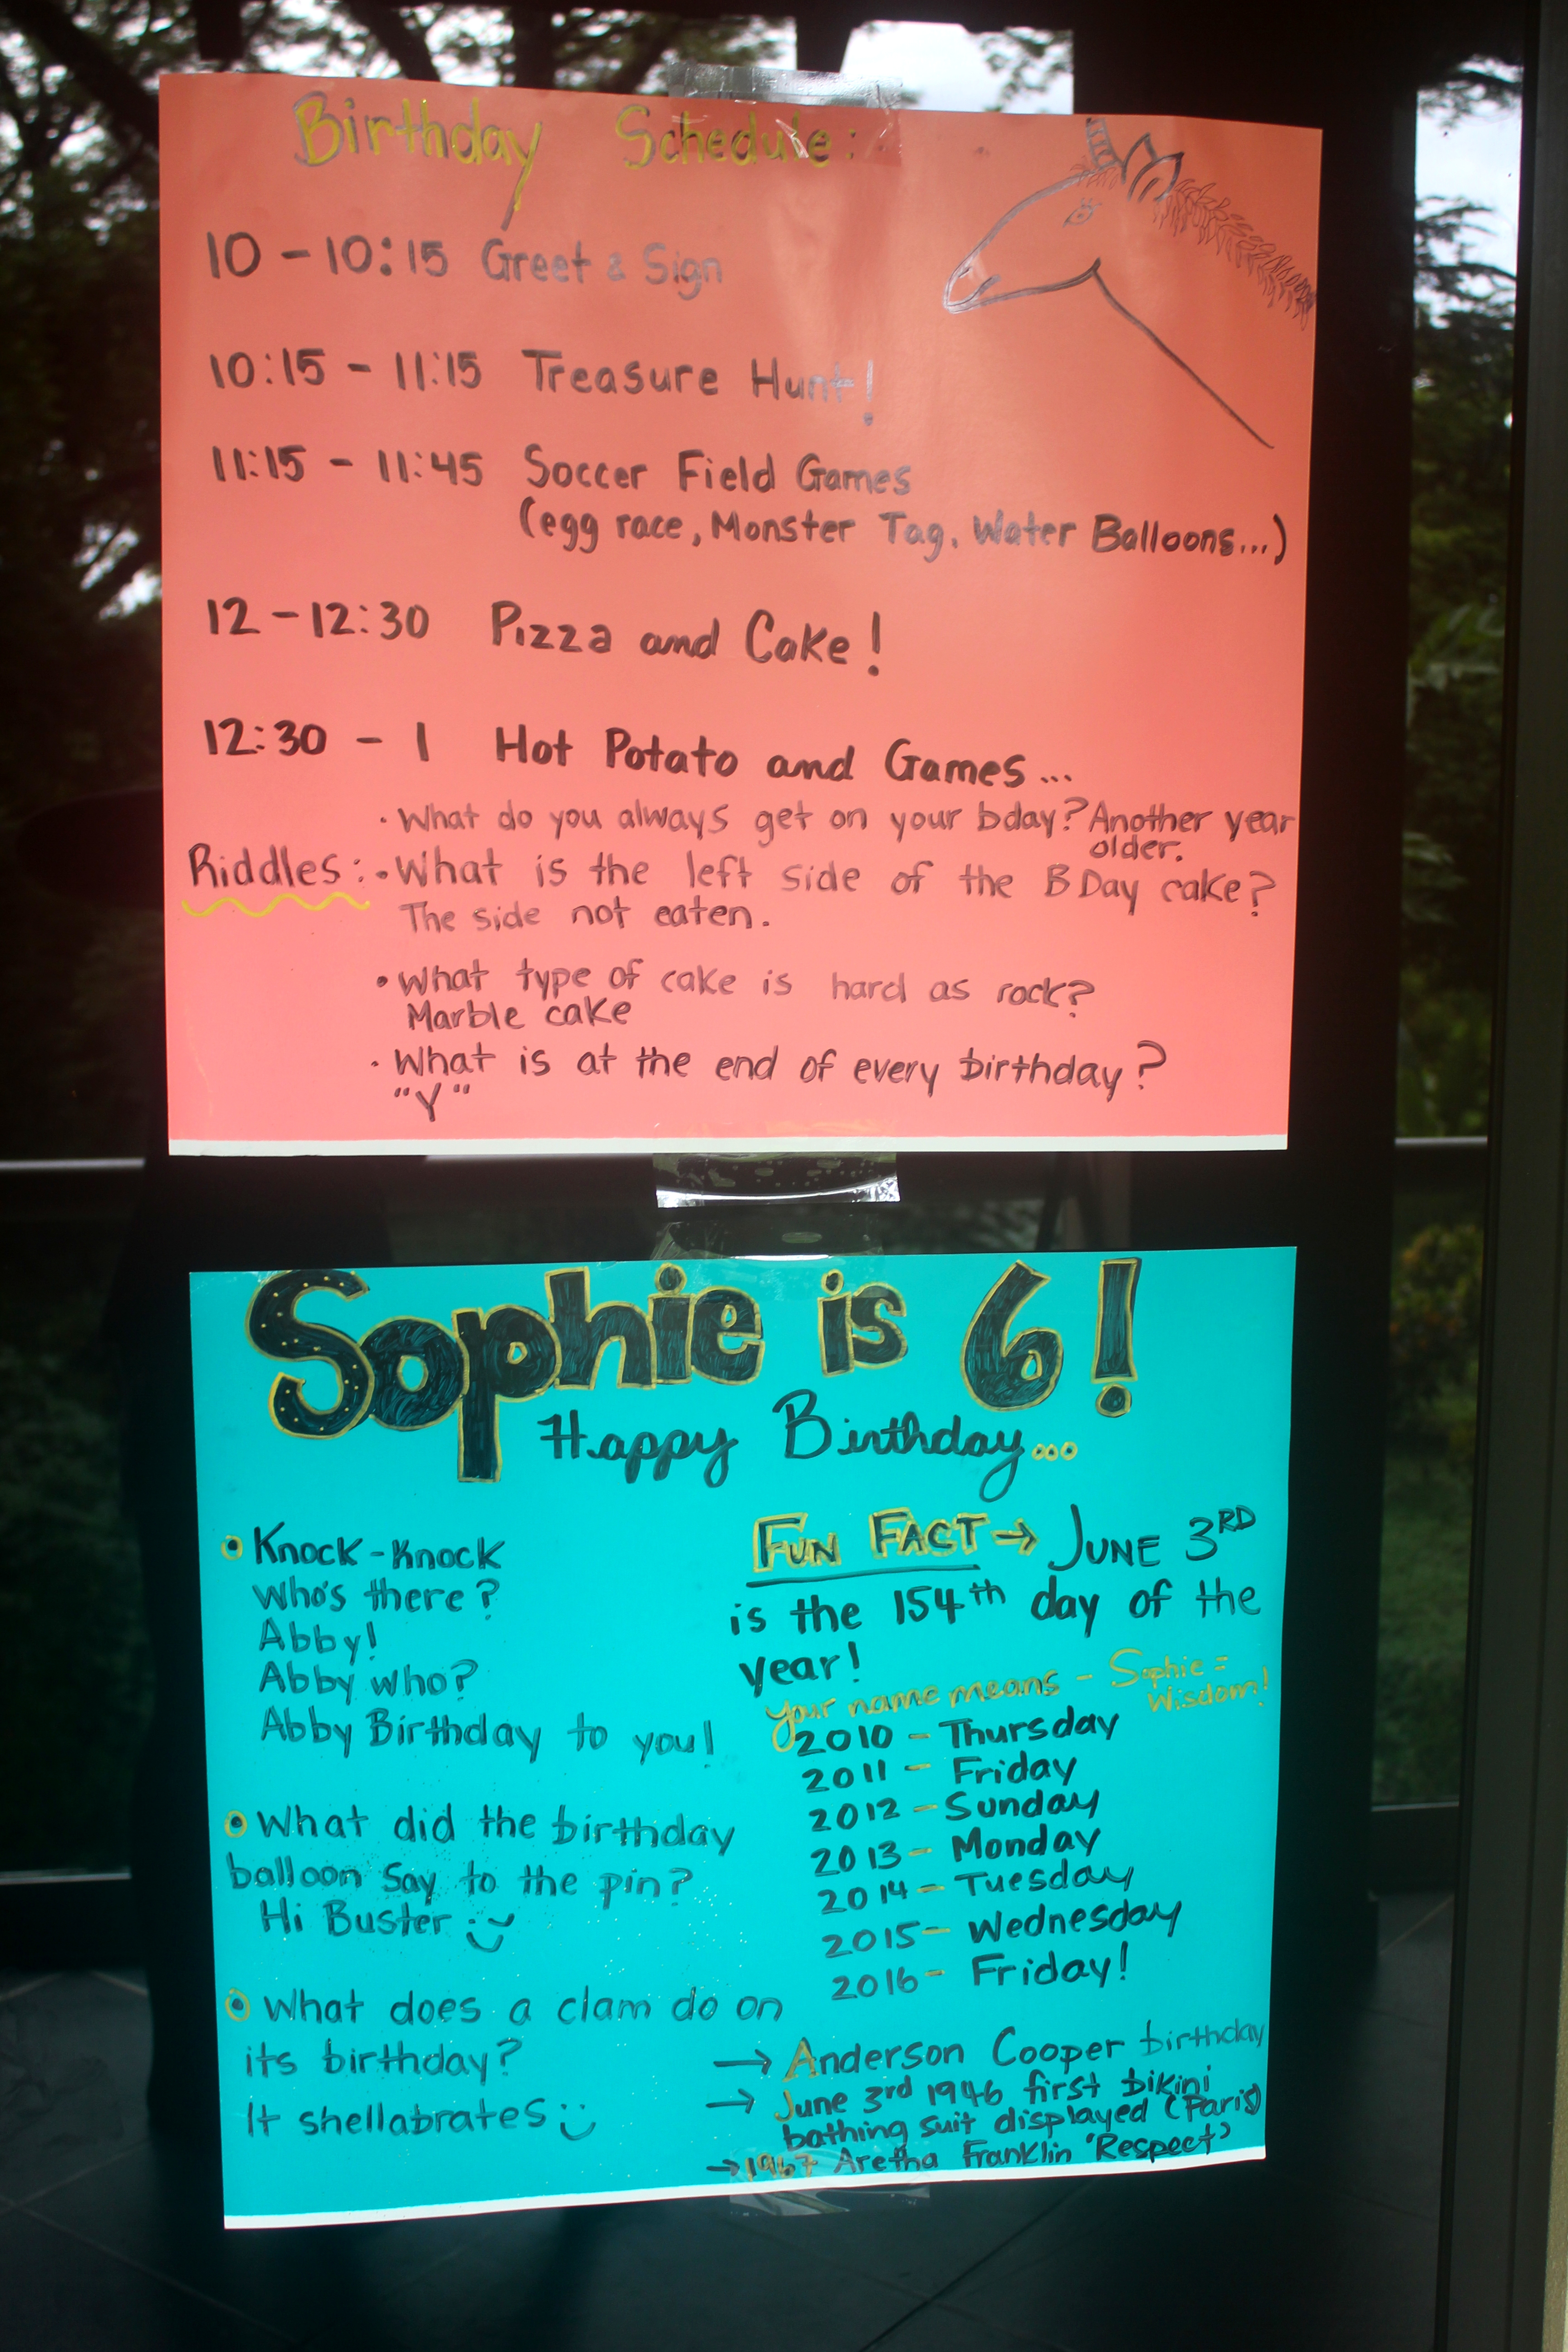 Birthday Schedule:
10 - 10:15 Greet & Sign
10:15 - 11:15 Treasure Hunt!
11:15 - 11:45 Soccer Field Games
(egg race, Monster Tag, Water Balloons...)
12 - 12:30 Pizza and Cake!
12:30 - 1 Hot Potato and Games...
• What do you always get on your bday? Another year
older.
Riddles: • What is the left side of the B Day cake?
The side not eaten.
• What type of cake is hard as rock?
Marble cake
• What is at the end of every birthday?
"Y"
Sophie is 6!
Happy Birthday...
• Knock-Knock
Who's there?
Abby!
Abby who?
Abby Birthday to you!
• What did the birthday
balloon say to the pin?
Hi Buster :)
• What does a clam do on
its birthday?
It shellabrates :)
FUN FACT → JUNE 3RD
is the 154th day of the
year!
Your name means - Sophie =
Wisdom!
2010 - Thursday
2011 - Friday
2012 - Sunday
2013 - Monday
2014 - Tuesday
2015 - Wednesday
2016 - Friday!
→ Anderson Cooper birthday
→ June 3rd 1946 first bikini
bathing suit displayed (Paris)
→ 1967 Aretha Franklin 'Respect'